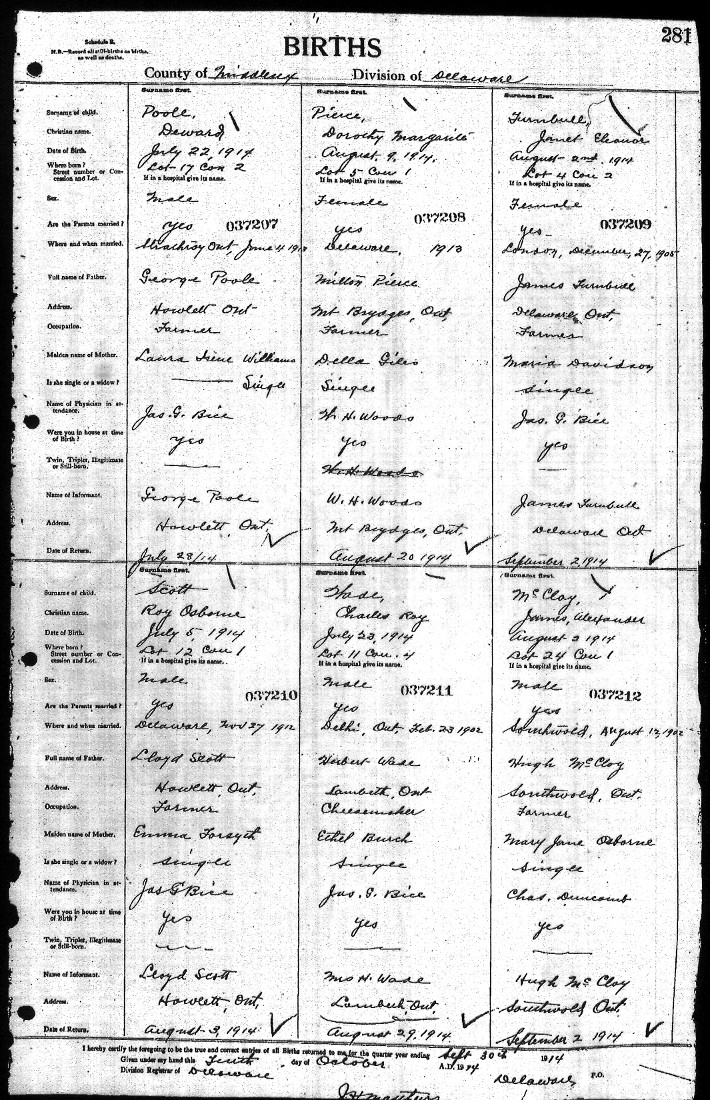 281
Schedule B.
N.B.—Record all still-births as births, as well as deaths.
BIRTHS
County of Middlesex Division of Delaware
Surname first. Surname first. Surname first.
Surname of child. Poole, Pierce, Turnbull,
Christian name. Deward Dorothy Margarite Janet Eleanor
Date of Birth. July 22, 1914 August 9, 1914. August 2nd, 1914
Where born? Street number or Concession and Lot. Lot 17 Con 2 Lot 5 Con 1 Lot 4 Con 2
If in a hospital give its name. If in a hospital give its name. If in a hospital give its name.
Sex. Male Female Female
037207 037208 037209
Are the Parents married? Yes yes yes
Where and when married. Strathroy Ont, June 4 1913 Delaware, 1913 London, December, 27, 1905
Full name of Father. George Poole Milton Pierce James Turnbull
Address. Howlett Ont Mt Brydges, Ont, Delaware, Ont
Occupation. Farmer Farmer Farmer
Maiden name of Mother. Laura Irene Williams Della Giles Maria Davidson
Is she single or a widow? Single Single Single
Name of Physician in attendance. Jas. G. Bice W. H. Woods Jas. G. Bice
Were you in house at time of Birth? yes yes yes
Twin, Triplet, Illegitimate or Still-born. —— W. H. Woods ——
Name of Informant. George Poole W. H. Woods James Turnbull
Address. Howlett, Ont, Mt Brydges, Ont, Delaware Ont
Date of Return. July 28/14 August 20 1914 September 2, 1914
Surname first. Surname first. Surname first.
Surname of child. Scott Wade, McCloy,
Christian name. Roy Osborne Charles Roy James, Alexander
Date of Birth. July 5, 1914 July 23, 1914 August 3 1914
Where born? Street number or Concession and Lot. Lot 12 Con 1 Lot 11 Con. 4 Lot 24 Con 1
If in a hospital give its name. If in a hospital give its name. If in a hospital give its name.
Sex. Male Male Male
037210 037211 037212
Are the Parents married? yes yes yes
Where and when married. Delaware, Nov 27 1912 Delhi, Ont, Feb. 23 1902 Southwold, August 12, 1902
Full name of Father. Lloyd Scott Herbert Wade Hugh McCloy
Address. Howlett, Ont, Lambeth, Ont Southwold, Ont.
Occupation. Farmer Cheesemaker Farmer
Maiden name of Mother. Emma Forsyth Ethel Burch Mary Jane Osborne
Is she single or a widow? Single Single Single
Name of Physician in attendance. Jas G Bice Jas. G. Bice Chas. Duncomb
Were you in house at time of Birth? Yes yes yes
Twin, Triplet, Illegitimate or Still-born.
Name of Informant. Lloyd Scott Mrs H. Wade Hugh McCloy
Address. Howlett, Ont, Lambeth, Ont, Southwold Ont.
Date of Return. August 3, 1914 August 29, 1914. September 2 1914
I hereby certify the foregoing to be the true and correct entries of all Births returned to me for the quarter year ending Sept 30th 1914
Given under my hand this Tenth day of October A.D. 1914
Division Registrar of Delaware Delaware, P.O.